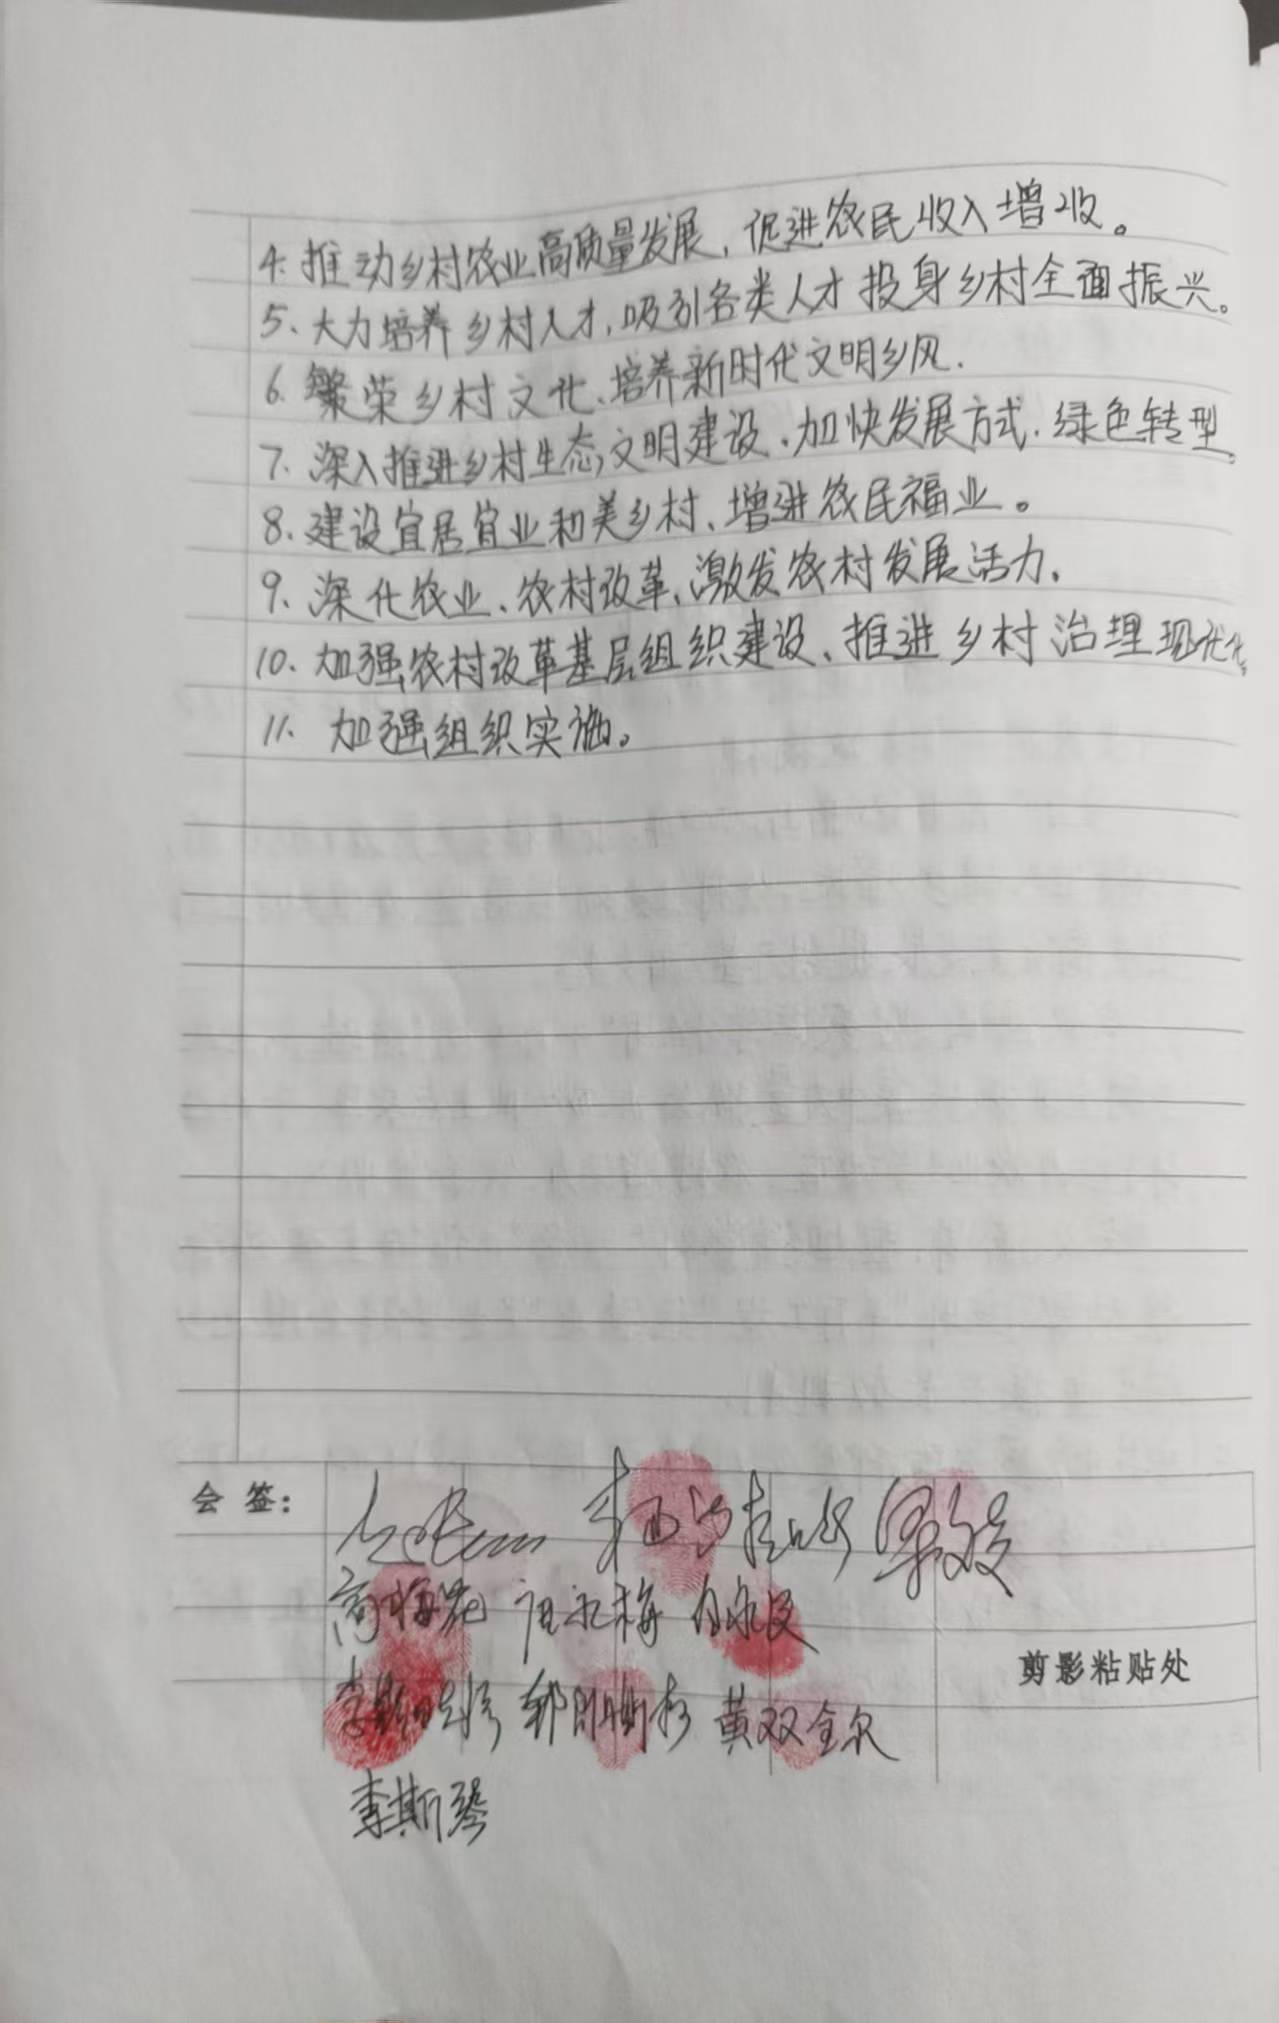 4. 推动乡村农业高质量发展，促进农民收入增收。
5、大力培养乡村人才，吸引各类人才投身乡村全面振兴。
6. 繁荣乡村文化、培养新时代文明乡风.
7. 深入推进乡村生态文明建设、加快发展方式.绿色转型。
8. 建设宜居宜业和美乡村、增进农民福业。
9. 深化农业、农村改革、激发农村发展活力.
10. 加强农村改革基层组织建设、推进乡村治理现代化。
11. 加强组织实施。
会签：
剪影粘贴处
黄双全
李斯琴